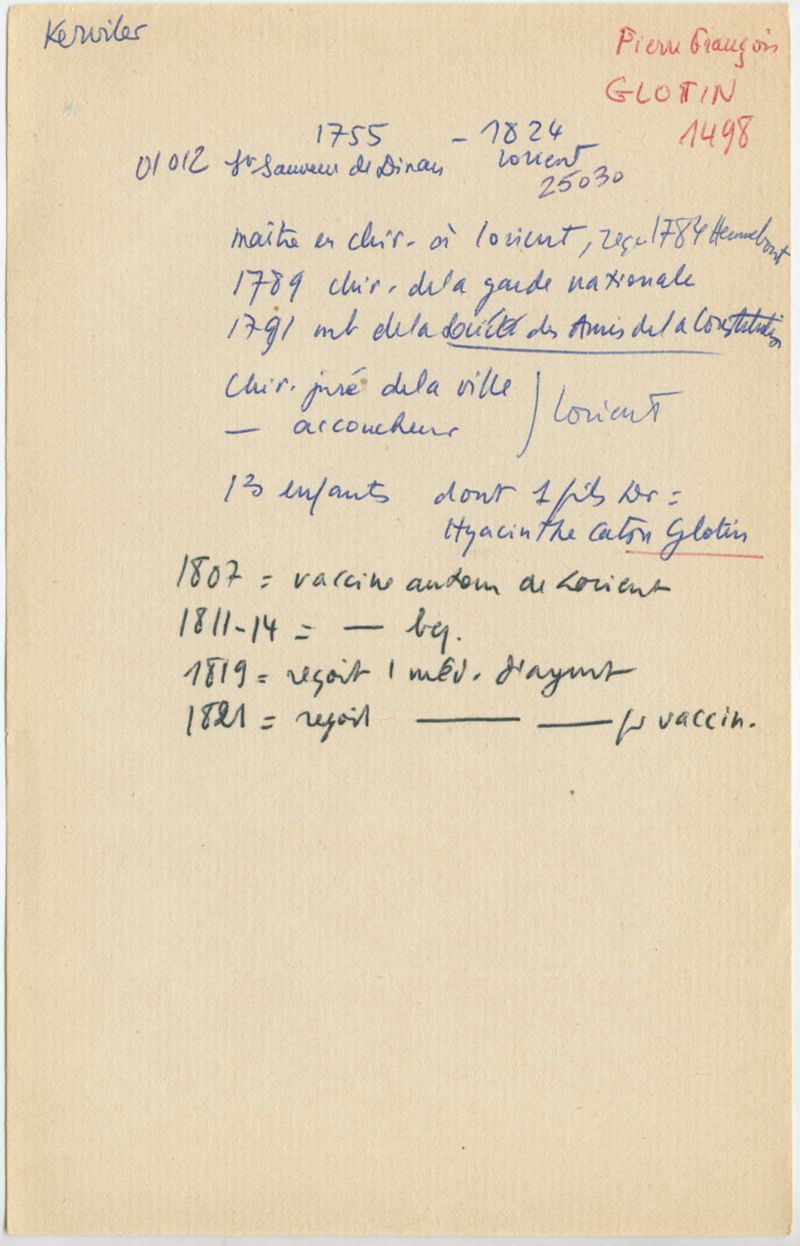 Kerviler
Pierre François
GLOTIN
1498
1755 - 1824
01012 St Sauveur de Dinan Lorient
25030
maître en chir. à Lorient, reçu 1784 Hennebont
1789 chir. de la garde nationale
1791 mb de la Société des Amis de la Constitution
Chir. juré de la ville
— accoucheur } Lorient
13 enfants dont 1 fils Dr =
Hyacinthe Caton Glotin
1807 = vaccine autour de Lorient
1811-14 = — bcp.
1819 = reçoit 1 méd. d'argent
1821 = reçoit — — pr vaccin.